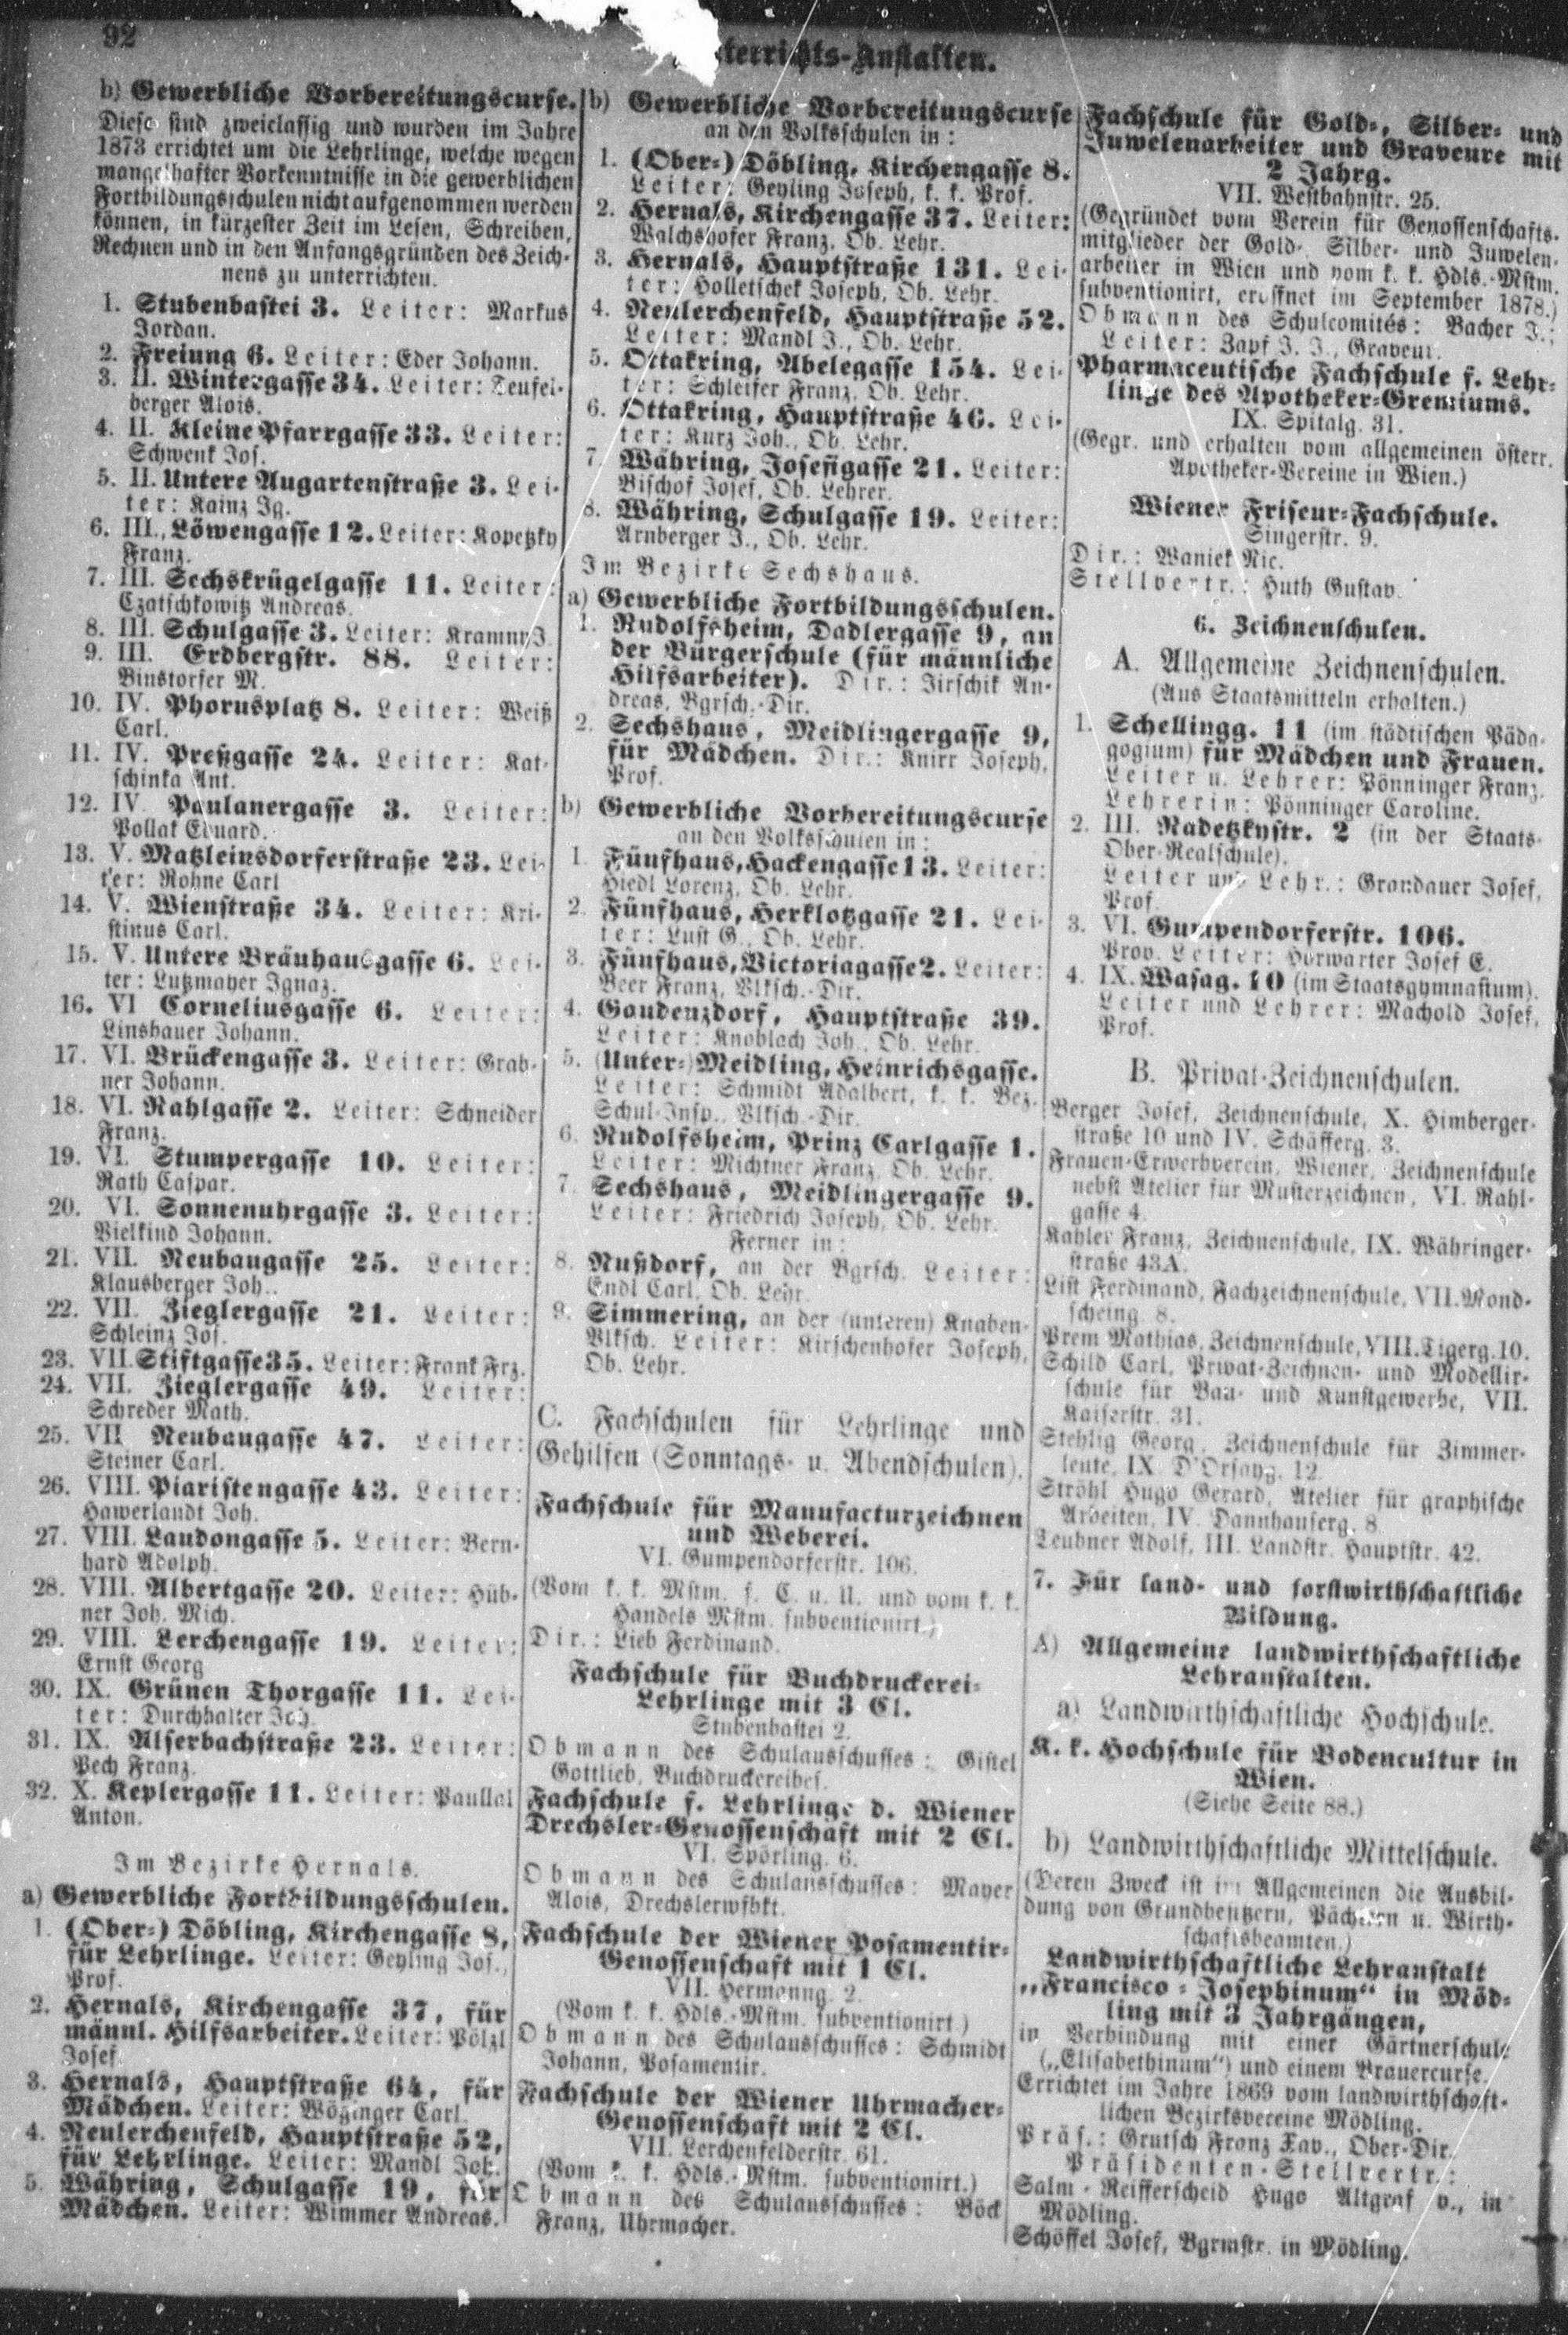 92
terrichts-Anstalten.
b) Gewerbliche Vorbereitungscurse.
Diese sind zweiclassig und wurden im Jahre
1873 errichtet um die Lehrlinge, welche wegen
mangelhafter Vorkenntnisse in die gewerblichen
Fortbildungsschulen nicht aufgenommen werden
können, in kürzester Zeit im Lesen, Schreiben,
Rechnen und in den Anfangsgründen des Zeich-
nens zu unterrichten.
1. Stubenbastei 3. Leiter: Markus
Jordan.
2. Freiung 6. Leiter: Eder Johann.
3. II. Wintergasse 34. Leiter: Teufel-
berger Alois.
4. II. Kleine Pfarrgasse 33. Leiter:
Schwenk Jos.
5. II. Untere Augartenstraße 3. Lei-
ter: Kainz Ig.
6. III., Löwengasse 12. Leiter: Kopetzky
Franz.
7. III. Sechskrügelgasse 11. Leiter:
Czatschkowitz Andreas.
8. III. Schulgasse 3. Leiter: Kramny J.
9. III. Erdbergstr. 88. Leiter:
Binstorfer M.
10. IV. Phorusplatz 8. Leiter: Weiß
Carl.
11. IV. Preßgasse 24. Leiter: Kat-
schinka Ant.
12. IV. Paulanergasse 3. Leiter:
Pollak Eduard.
13. V. Matzleinsdorferstraße 23. Lei-
ter: Rohne Carl
14. V. Wienstraße 34. Leiter: Kri-
stinus Carl.
15. V. Untere Bräuhausgasse 6. Lei-
ter: Lutzmayer Ignaz.
16. VI Corneliusgasse 6. Leiter:
Linsbauer Johann.
17. VI. Brückengasse 3. Leiter: Grab-
ner Johann.
18. VI. Rahlgasse 2. Leiter: Schneider
Franz.
19. VI. Stumpergasse 10. Leiter:
Rath Caspar.
20. VI. Sonnenuhrgasse 3. Leiter:
Vielkind Johann.
21. VII. Neubaugasse 25. Leiter:
Klausberger Joh..
22. VII. Zieglergasse 21. Leiter:
Schleinz Jos.
23. VII. Stiftgasse 35. Leiter: Frank Frz.
24. VII. Zieglergasse 49. Leiter:
Schreder Math.
25. VII Neubaugasse 47. Leiter:
Steiner Carl.
26. VIII. Piaristengasse 43. Leiter:
Hawerlandt Joh.
27. VIII. Laudongasse 5. Leiter: Bern-
hard Adolph.
28. VIII. Albertgasse 20. Leiter: Hüb-
ner Joh. Mich.
29. VIII. Lerchengasse 19. Leiter:
Ernst Georg
30. IX. Grünen Thorgasse 11. Lei-
ter: Durchhalter Joh.
31. IX. Alserbachstraße 23. Leiter:
Pech Franz.
32. X. Keplergasse 11. Leiter: Paullal
Anton.
Im Bezirke Hernals.
a) Gewerbliche Fortbildungsschulen.
1. (Ober-) Döbling, Kirchengasse 8,
für Lehrlinge. Leiter: Geyling Jos.,
Prof.
2. Hernals, Kirchengasse 37, für
männl. Hilfsarbeiter. Leiter: Pölzl
Josef.
3. Hernals, Hauptstraße 64, für
Mädchen. Leiter: Wözinger Carl.
4. Neulerchenfeld, Hauptstraße 52,
für Lehrlinge. Leiter: Mandl Joh.
5. Währing, Schulgasse 19, für
Mädchen. Leiter: Wimmer Andreas.
b) Gewerbliche Vorbereitungscurse
an den Volksschulen in:
1. (Ober-) Döbling, Kirchengasse 8.
Leiter: Geyling Joseph, k. k. Prof.
2. Hernals, Kirchengasse 37. Leiter:
Walchshofer Franz, Ob. Lehr.
3. Hernals, Hauptstraße 131. Lei-
ter: Holletschek Joseph, Ob. Lehr.
4. Neulerchenfeld, Hauptstraße 52.
Leiter: Mandl J., Ob. Lehr.
5. Ottakring, Abelegasse 154. Lei-
ter: Schleifer Franz, Ob. Lehr.
6. Ottakring, Hauptstraße 46. Lei-
ter: Kurz Joh., Ob. Lehr.
7. Währing, Josefigasse 21. Leiter:
Bischof Josef, Ob. Lehrer.
8. Währing, Schulgasse 19. Leiter:
Arnberger J., Ob. Lehr.
Im Bezirke Sechshaus.
a) Gewerbliche Fortbildungsschulen.
1. Rudolfsheim, Dadlergasse 9, an
der Bürgerschule (für männliche
Hilfsarbeiter). Dir.: Jirschik An-
dreas, Bgrsch.-Dir.
2. Sechshaus, Meidlingergasse 9,
für Mädchen. Dir.: Knirr Joseph,
Prof.
b) Gewerbliche Vorbereitungscurse
an den Volksschulen in:
1. Fünfhaus, Hackengasse 13. Leiter:
Hiedl Lorenz, Ob. Lehr.
2. Fünfhaus, Herklotzgasse 21. Lei-
ter: Lust G., Ob. Lehr.
3. Fünfhaus, Victoriagasse 2. Leiter:
Beer Franz, Vlksch.-Dir.
4. Gaudenzdorf, Hauptstraße 39.
Leiter: Knoblach Joh., Ob. Lehr.
5. (Unter-) Meidling, Heinrichsgasse.
Leiter: Schmidt Adalbert, k. k. Bez.
Schul-Insp., Vlksch.-Dir.
6. Rudolfsheim, Prinz Carlgasse 1.
Leiter: Michtner Franz, Ob. Lehr.
7. Sechshaus, Meidlingergasse 9.
Leiter: Friedrich Joseph, Ob. Lehr.
Ferner in:
8. Nußdorf, an der Bgrsch. Leiter:
Endl Carl, Ob. Lehr.
9. Simmering, an der (unteren) Knaben-
Vlksch. Leiter: Kirschenhofer Joseph,
Ob. Lehr.
C. Fachschulen für Lehrlinge und
Gehilfen (Sonntags- u. Abendschulen).
Fachschule für Manufacturzeichnen
und Weberei.
VI. Gumpendorferstr. 106.
(Vom k. k. Mstm. f. C. u. U. und vom k. k.
Handels Mstm. subventionirt.)
Dir.: Lieb Ferdinand.
Fachschule für Buchdruckerei-
Lehrlinge mit 3 Cl.
Stubenbastei 2.
Obmann des Schulausschusses: Gistel
Gottlieb, Buchdruckereibes.
Fachschule f. Lehrlinge d. Wiener
Drechsler-Genossenschaft mit 2 Cl.
VI. Spörling. 6.
Obmann des Schulausschusses: Mayer
Alois, Drechslerwfbkt.
Fachschule der Wiener Posamentir-
Genossenschaft mit 1 Cl.
VII. Hermanng. 2.
(Vom k. k. Hdls.-Mstm. subventionirt.)
Obmann des Schulausschusses: Schmidt
Johann, Posamentir.
Fachschule der Wiener Uhrmacher-
Genossenschaft mit 2 Cl.
VII. Lerchenfelderstr. 61.
(Vom k. k. Hdls.-Mstm. subventionirt.)
Obmann des Schulausschusses: Böck
Franz, Uhrmacher.
Fachschule für Gold-, Silber- und
Juwelenarbeiter und Graveure mit
2 Jahrg.
VII. Westbahnstr. 25.
(Gegründet vom Verein für Genossenschafts-
mitglieder der Gold- Silber- und Juwelen-
arbeiter in Wien und vom k. k. Hdls.-Mstm.
subventionirt, eröffnet im September 1878.)
Obmann des Schulcomités: Bacher J.;
Leiter: Zapf J. J., Graveur.
Pharmaceutische Fachschule f. Lehr-
linge des Apotheker-Gremiums.
IX. Spitalg. 31.
(Gegr. und erhalten vom allgemeinen österr.
Apotheker-Vereine in Wien.)
Wiener Friseur-Fachschule.
Singerstr. 9.
Dir.: Waniek Nic.
Stellvertr.: Huth Gustav.
6. Zeichnenschulen.
A. Allgemeine Zeichnenschulen.
(Aus Staatsmitteln erhalten.)
1. Schellingg. 11 (im städtischen Päda-
gogium) für Mädchen und Frauen.
Leiter u. Lehrer: Pönninger Franz.
Lehrerin: Pönninger Caroline.
2. III. Radetzkystr. 2 (in der Staats-
Ober-Realschule).
Leiter und Lehr.: Grandauer Josef,
Prof.
3. VI. Gumpendorferstr. 106.
Prov. Leiter: Horwarter Josef E.
4. IX. Wasag. 10 (im Staatsgymnasium).
Leiter und Lehrer: Machold Josef,
Prof.
B. Privat-Zeichnenschulen.
Berger Josef, Zeichnenschule, X. Himberger-
straße 10 und IV. Schäfferg. 3.
Frauen-Erwerbverein, Wiener, Zeichnenschule
nebst Atelier für Musterzeichnen, VI. Rahl-
gasse 4.
Kahler Franz, Zeichnenschule, IX. Währinger-
straße 43A.
List Ferdinand, Fachzeichnenschule, VII. Mond-
scheing. 8.
Prem Mathias, Zeichnenschule, VIII. Tigerg. 10.
Schild Carl, Privat-Zeichnen- und Modellir-
schule für Bau- und Kunstgewerbe, VII.
Kaiserstr. 31.
Stehlig Georg, Zeichnenschule für Zimmer-
leute, IX. D'Orsayg. 12.
Ströhl Hugo Gerard, Atelier für graphische
Arbeiten, IV. Dannhauserg. 8.
Teubner Adolf, III. Landstr. Hauptstr. 42.
7. Für land- und forstwirthschaftliche
Bildung.
A) Allgemeine landwirthschaftliche
Lehranstalten.
a) Landwirthschaftliche Hochschule.
K. k. Hochschule für Bodencultur in
Wien.
(Siehe Seite 88.)
b) Landwirthschaftliche Mittelschule.
(Deren Zweck ist im Allgemeinen die Ausbil-
dung von Grundbesitzern, Pächtern u. Wirth-
schaftsbeamten.)
Landwirthschaftliche Lehranstalt
„Francisco-Josephinum“ in Möd-
ling mit 3 Jahrgängen,
in Verbindung mit einer Gärtnerschule
(„Elisabethinum“) und einem Brauercurse.
Errichtet im Jahre 1869 vom landwirthschaft-
lichen Bezirksvereine Mödling.
Präs.: Grutsch Franz Xav., Ober-Dir.
Präsidenten-Stellvertr.:
Salm-Reifferscheid Hugo Altgraf v., in
Mödling.
Schöffel Josef, Bgrmstr. in Mödling.